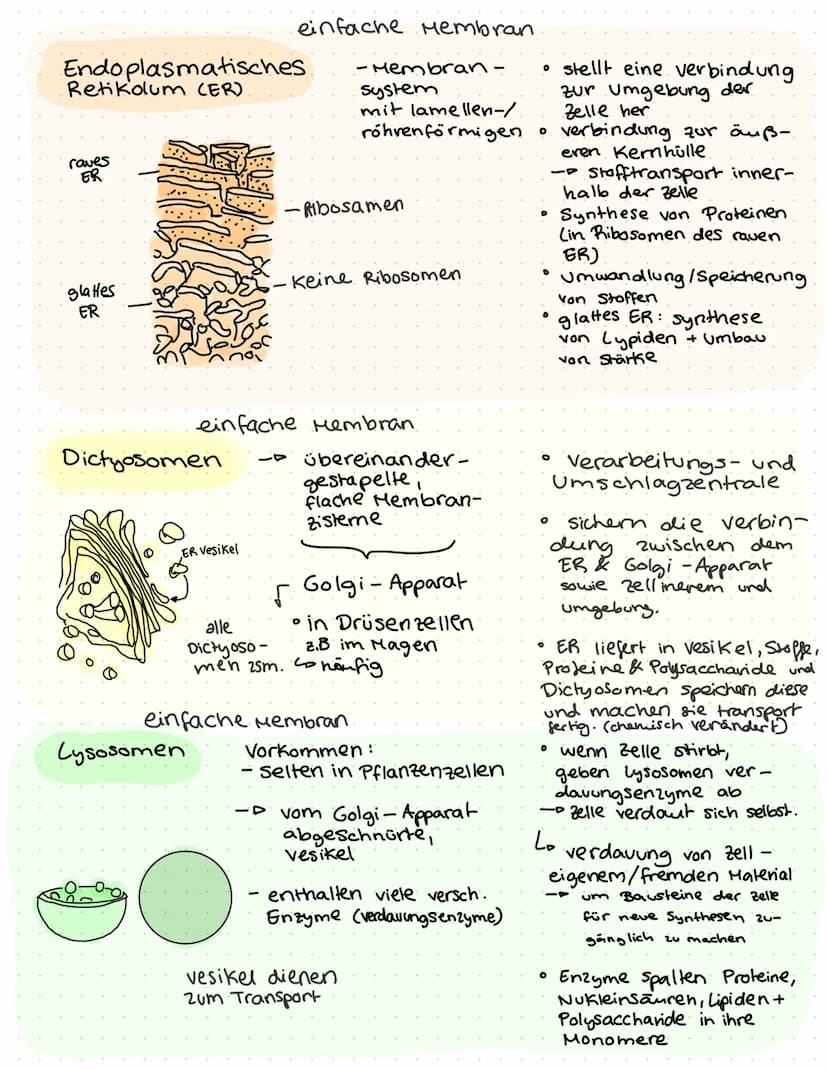 einfache Membran
Endoplasmatisches
Retikolum (ER)
- Membran-
system
mit lamellen-/
röhrenförmigen
raues
ER
- Ribosamen
- Keine Ribosomen
glattes
ER
• stellt eine verbindung
zur umgebung der
Zelle her
• verbindung zur äuß-
eren Kernhülle
→ Stofftransport inner-
halb der Zelle
• Synthese von Proteinen
(in Ribosomen des rauen
ER)
• Umwandlung/Speicherung
von Stoffen
• glattes ER: synthese
von Lypiden + Umbau
von Stärke
einfache Membran
Dictyosomen
→ übereinander-
gestapelte,
flache Membran-
zisterne
ER vesikel
Golgi-Apparat
• in Drüsenzellen
z.B im Magen
↳ häufig
alle
Dictyoso-
men zsm.
• verarbeitungs- und
Umschlagzentrale
• sichern die verbin-
dung zwischen dem
ER & Golgi-Apparat
sowie zellinerem und
umgebung.
• ER liefert in vesikel, Stoffe,
Proteine & Polysaccharide und
Dictyosomen speichern diese
und machen sie transport
fertig. (chemisch verändert)
einfache Membran
Lysosomen
Vorkommen:
- selten in Pflanzenzellen
→ vom Golgi-Apparat
abgeschnürte,
vesikel
- enthalten viele versch.
Enzyme (verdauungsenzyme)
vesikel dienen
zum Transport
• wenn Zelle stirbt,
geben lysosomen ver-
dauungsenzyme ab
→ Zelle verdaut sich selbst.
↳ verdauung von zell-
eigenem/fremden Material
→ um Bausteine der Zelle
für neue Synthesen zu-
gänglich zu machen
• Enzyme spalten Proteine,
Nukleinsäuren, Lipiden +
Polysaccharide in ihre
Monomere